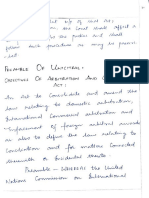 u/s 89 of Civil Act;
the Court shall effect a
the parties and shall
follow such procedure as may be prescri-
bed.
PREAMBLE OF UNCITRAL:
OF ARBITRATION AND
ACT:
An Act to Consolidate and amend the
law relating to domestic arbitration,
International Commercial arbitration and
Enforcement of foreign arbitral awards
as also to define the law relating to
Conciliation and for matters connected
therewith or incidental thereto.
Preamble - WHEREAS the United
Nations Commission on International